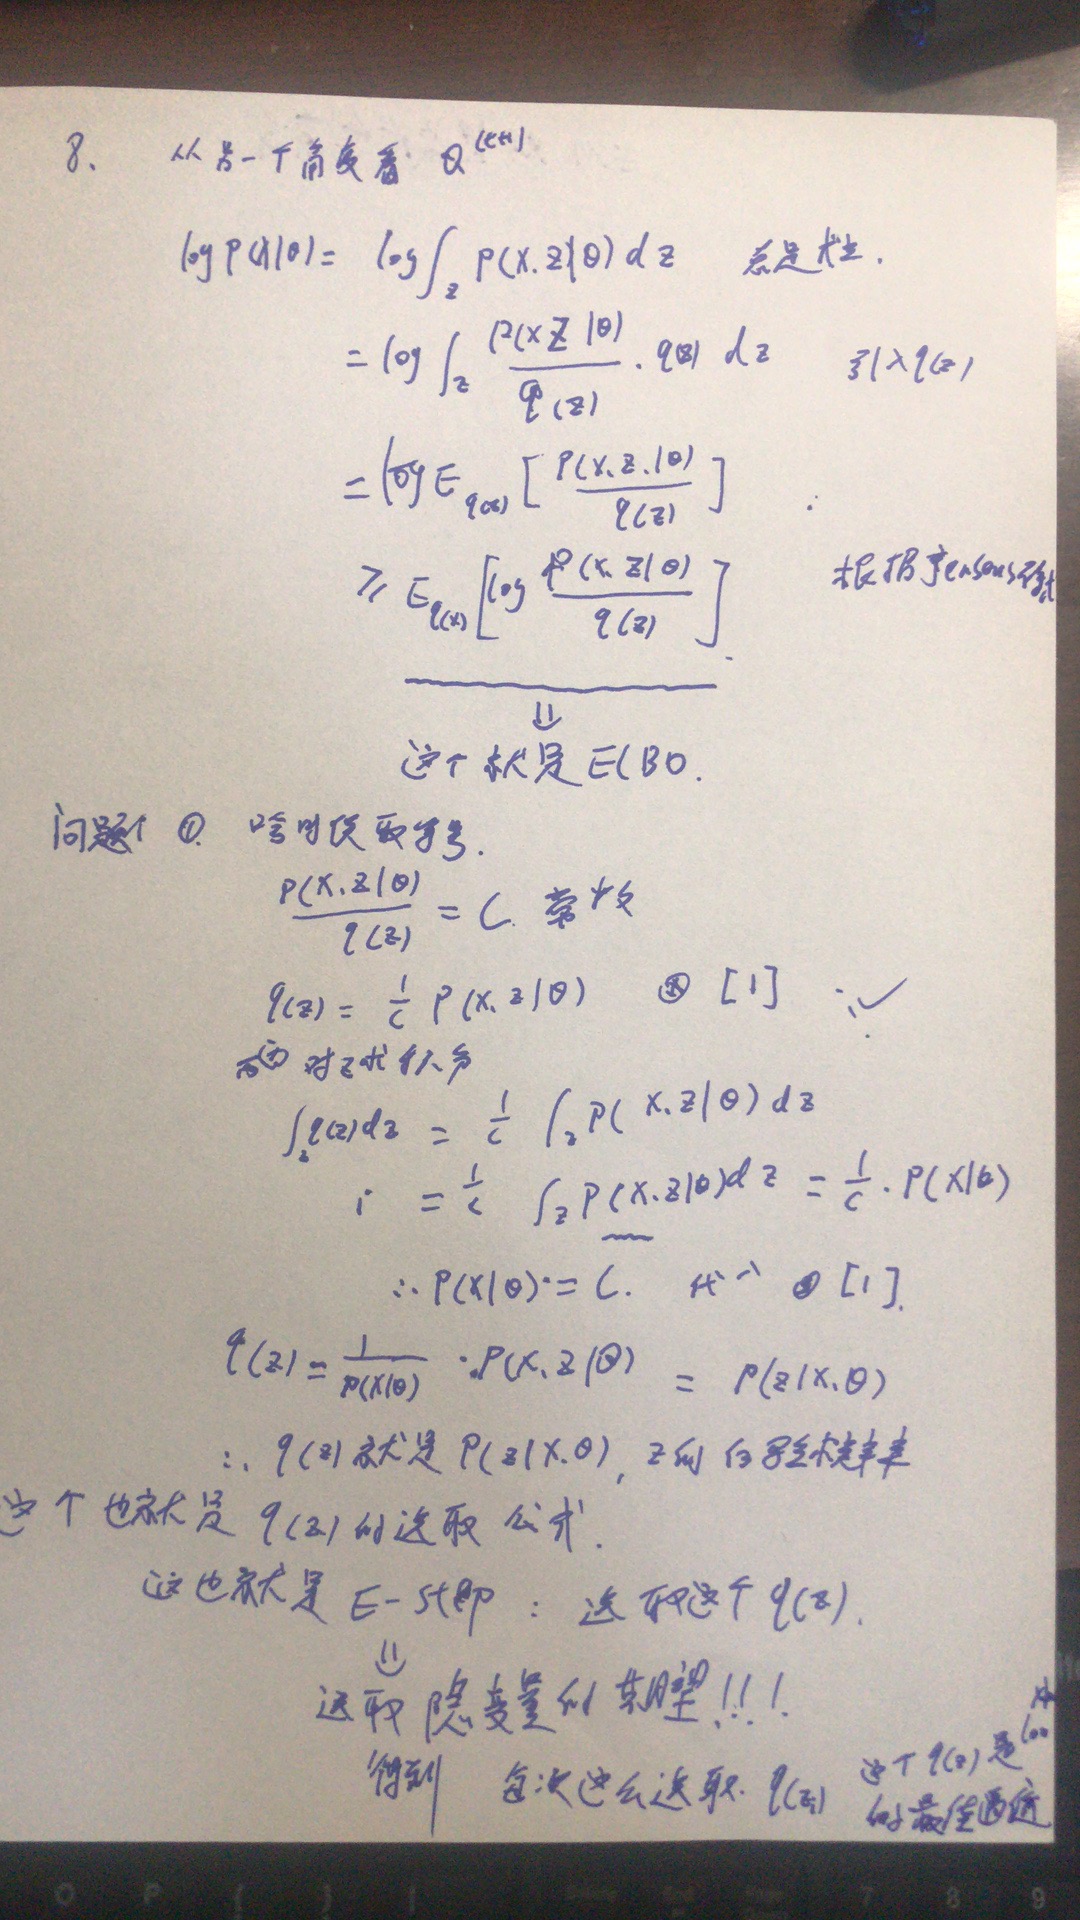 8. 从另一个角度看 θ^(t+1)
log P(X|θ) = log ∫_z P(X.Z|θ) dz 总是成立.
= log ∫_z P(X Z|θ) / q(z) · q(z) dz 引入q(z)
= log E_q(z) [ P(X.Z.|θ) / q(z) ]
≥ E_q(z) [ log P(X.Z|θ) / q(z) ] 根据Jensens
⇓
这个就是 ELBO.
问题个 ①. 啥时候取等号.
P(X.Z|θ) / q(z) = C. 常数
q(z) = 1/C P(X.Z|θ) ⊛ [1] ✓
两边对z求积分
∫_z q(z) dz = 1/C ∫_z P(X.Z|θ) dz
1 = 1/C ∫_z P(X.Z|θ) dz = 1/C · P(X|θ)
∴ P(X|θ) = C. 代入 [1].
q(z) = 1 / P(X|θ) · P(X.Z|θ) = P(z|X.θ)
∴ q(z) 就是 P(z|X.θ), z的后验概率
这个也就是 q(z) 的选取公式.
这也就是 E-step : 选取这个 q(z).
⇓
选取 隐变量的期望!!!
得到 每次这么选取 q(z) 这个 q(z) 是
的最佳逼近